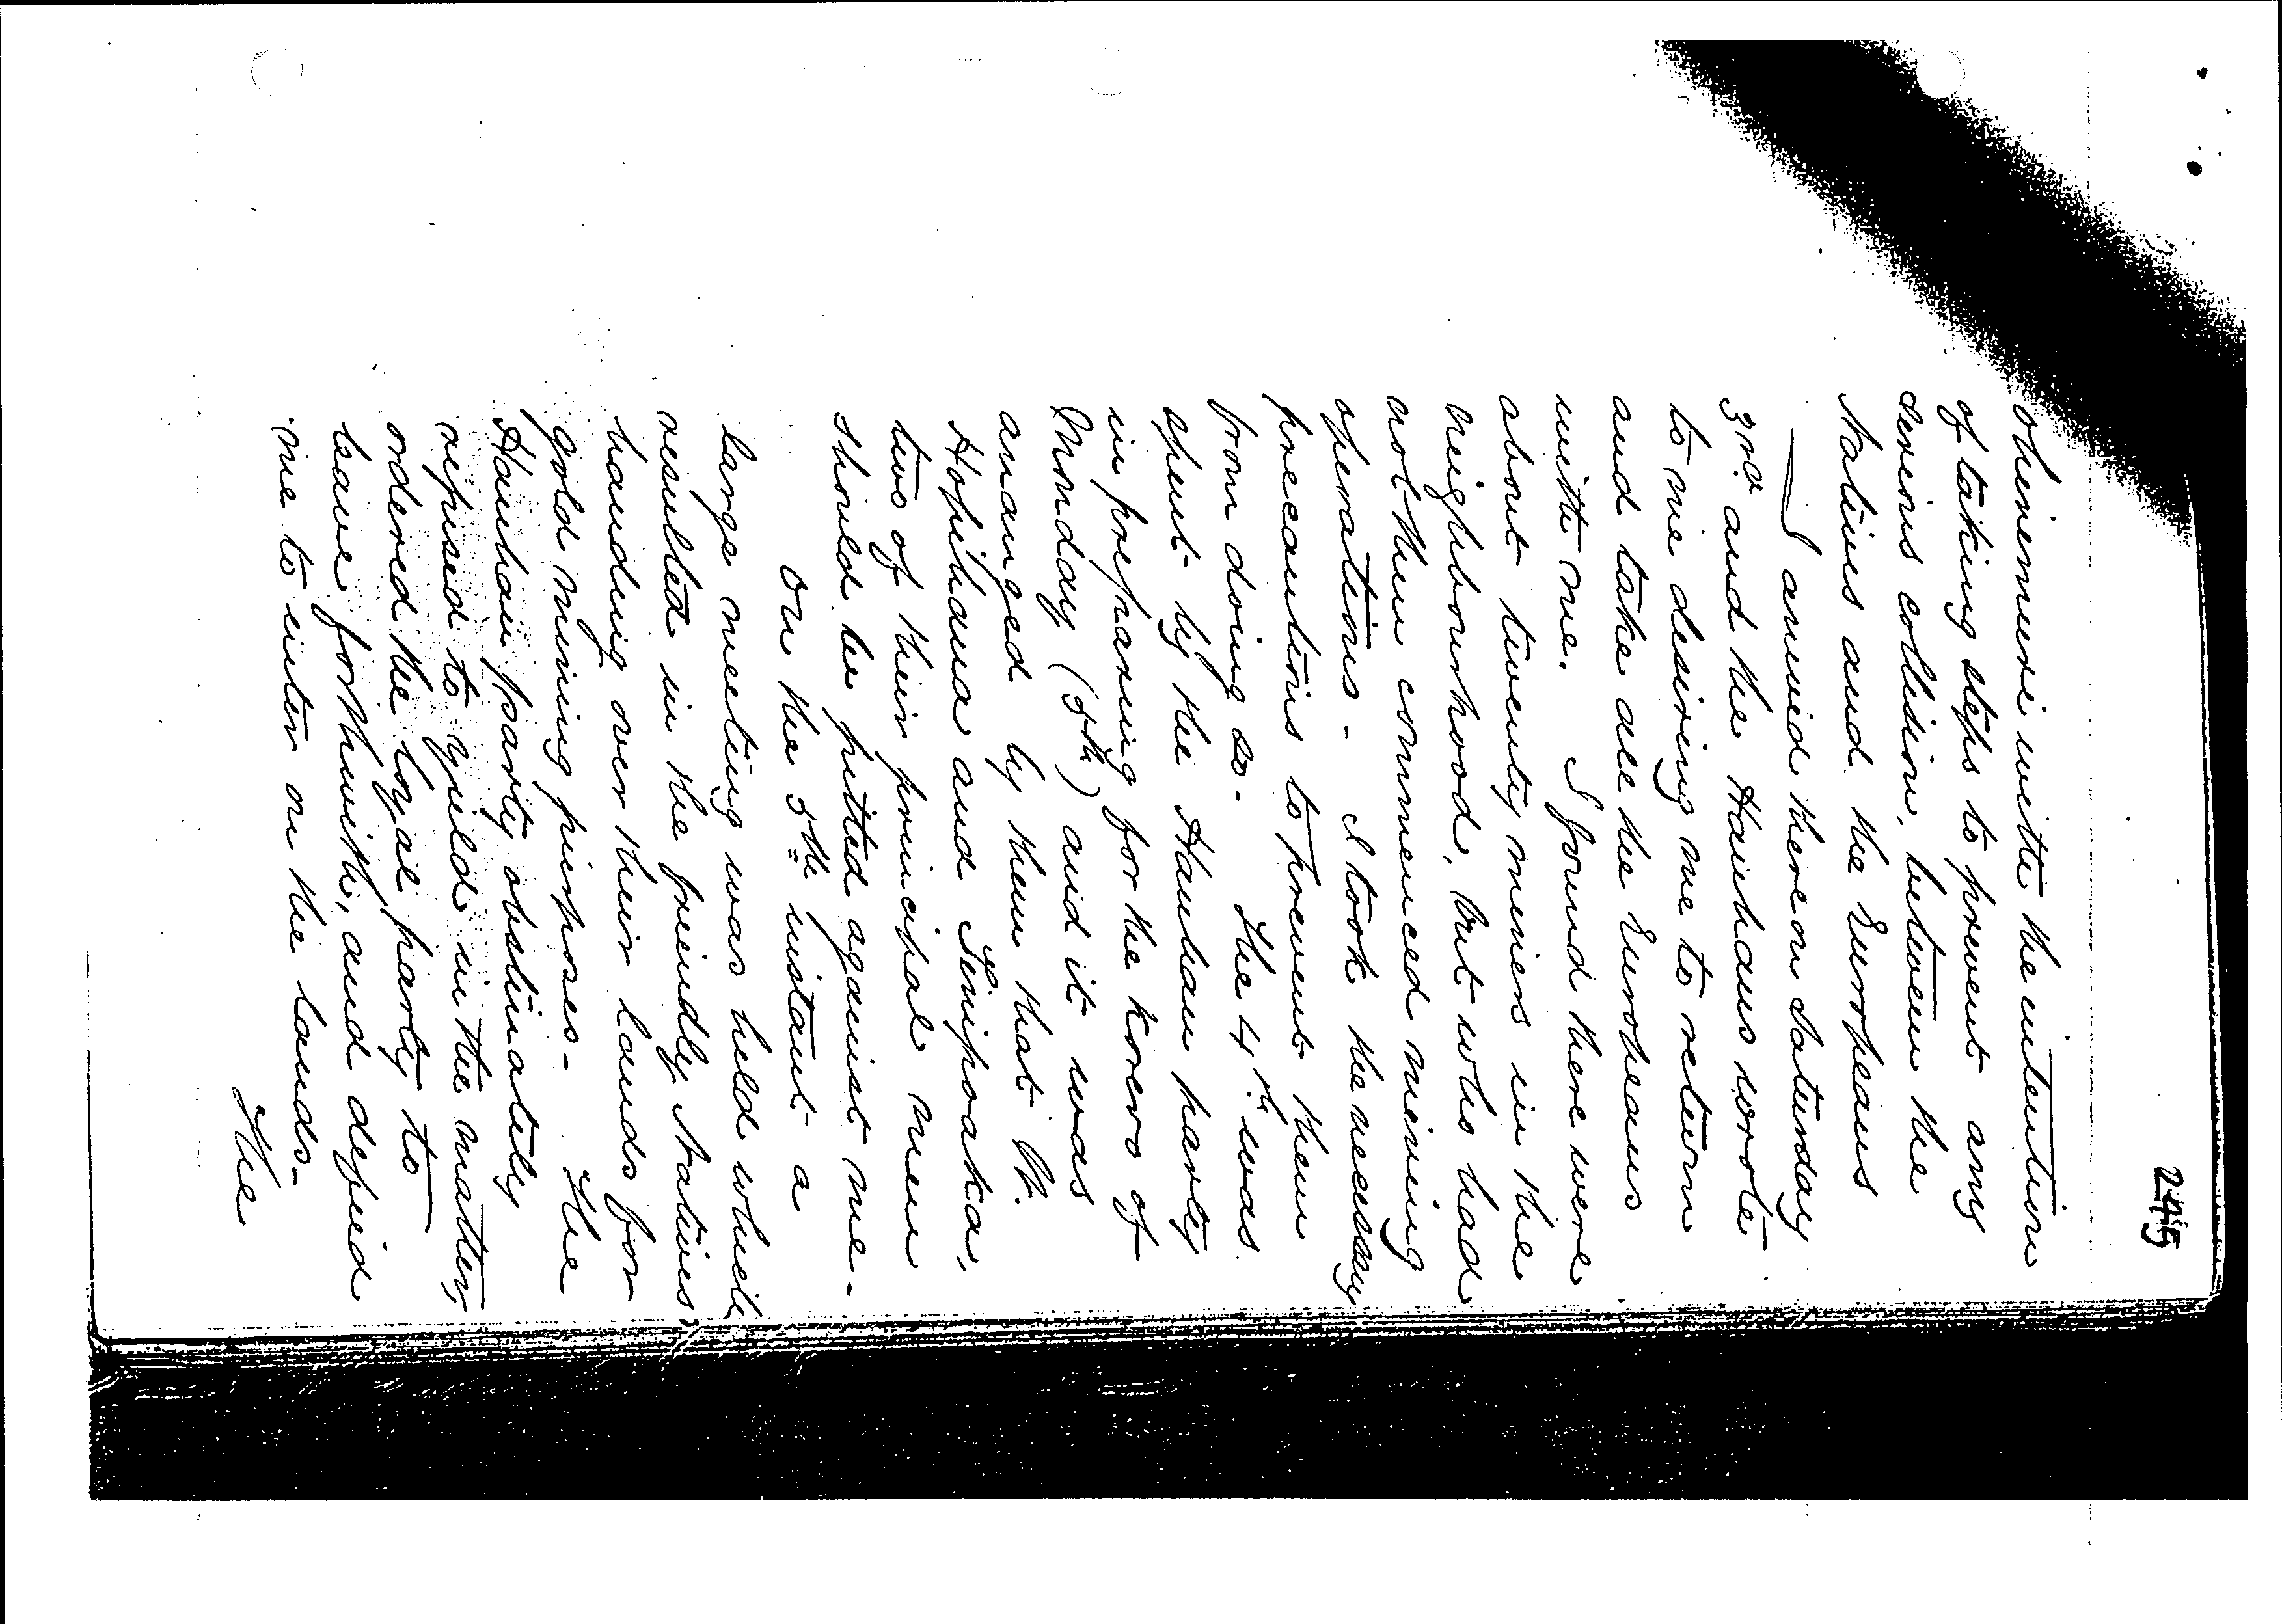 245
Ohinemuri with the intention
of taking steps to prevent any
serious collision, between the
Natives and the Europeans
I arrived there on Saturday
3rd. and the Hauhaus wrote
to me desiring me to return
and take all the Europeans
with me. I found there were
about twenty miners in the
neighbourhood, but who had
not then commenced mining
operations - I took the necessary
precautions to prevent them
from doing so. The 4th. was
spent by the Hauhau party
in preparing for the korero of
Monday (5th) and it was
arranged by them that W.
Hopihana and
two of their principal men
should be pitted against me -
On the 5th instant a
large meeting was held which
resulted in the friendly Natives
handing over their lands for
gold mining purposes - The
Hauhau party obstinately
refused to yield in the matter,
ordered the loyal party to
leave forthwith, and defied
me to enter on the lands -
The